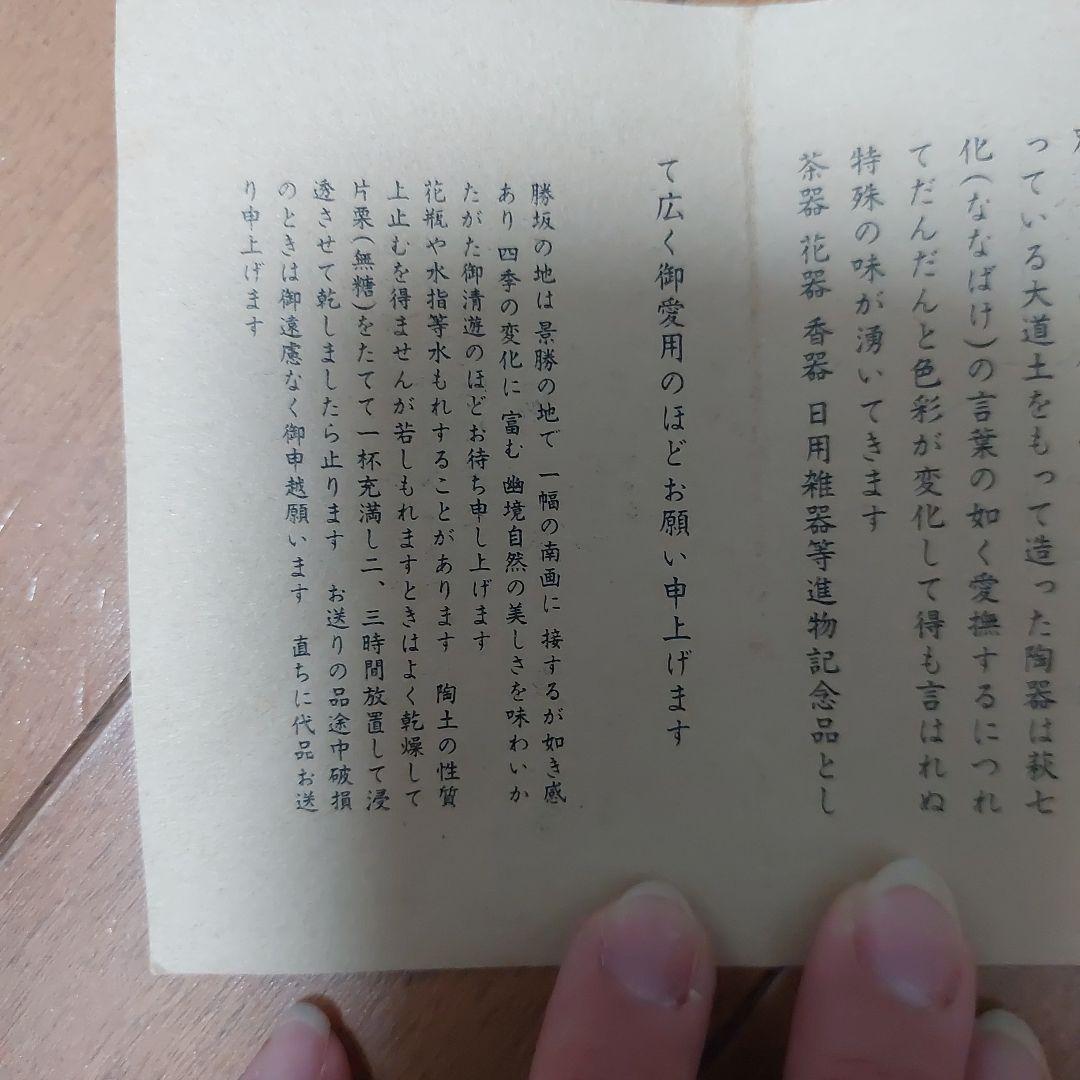 っている大道土をもって造った陶器は萩七
化(ななばけ)の言葉の如く愛撫するにつれ
てだんだんと色彩が変化して得も言はれぬ
特殊の味が湧いてきます
茶器 花器 香器 日用雑器等進物記念品とし
て広く御愛用のほどお願い申上げます
勝坂の地は景勝の地で 一幅の南画に 接するが如き感
あり 四季の変化に 富む 幽境自然の美しさを味わいか
たがた御清遊のほどお待ち申し上げます
花瓶や水指等水もれすることがあります 陶土の性質
上止むを得ませんが若しもれますときはよく乾燥して
片栗(無糖)をたてて一杯充満し二、三時間放置して浸
透させて乾しましたら止ります お送りの品途中破損
のときは御遠慮なく御申越願います 直ちに代品お送
り申上げます